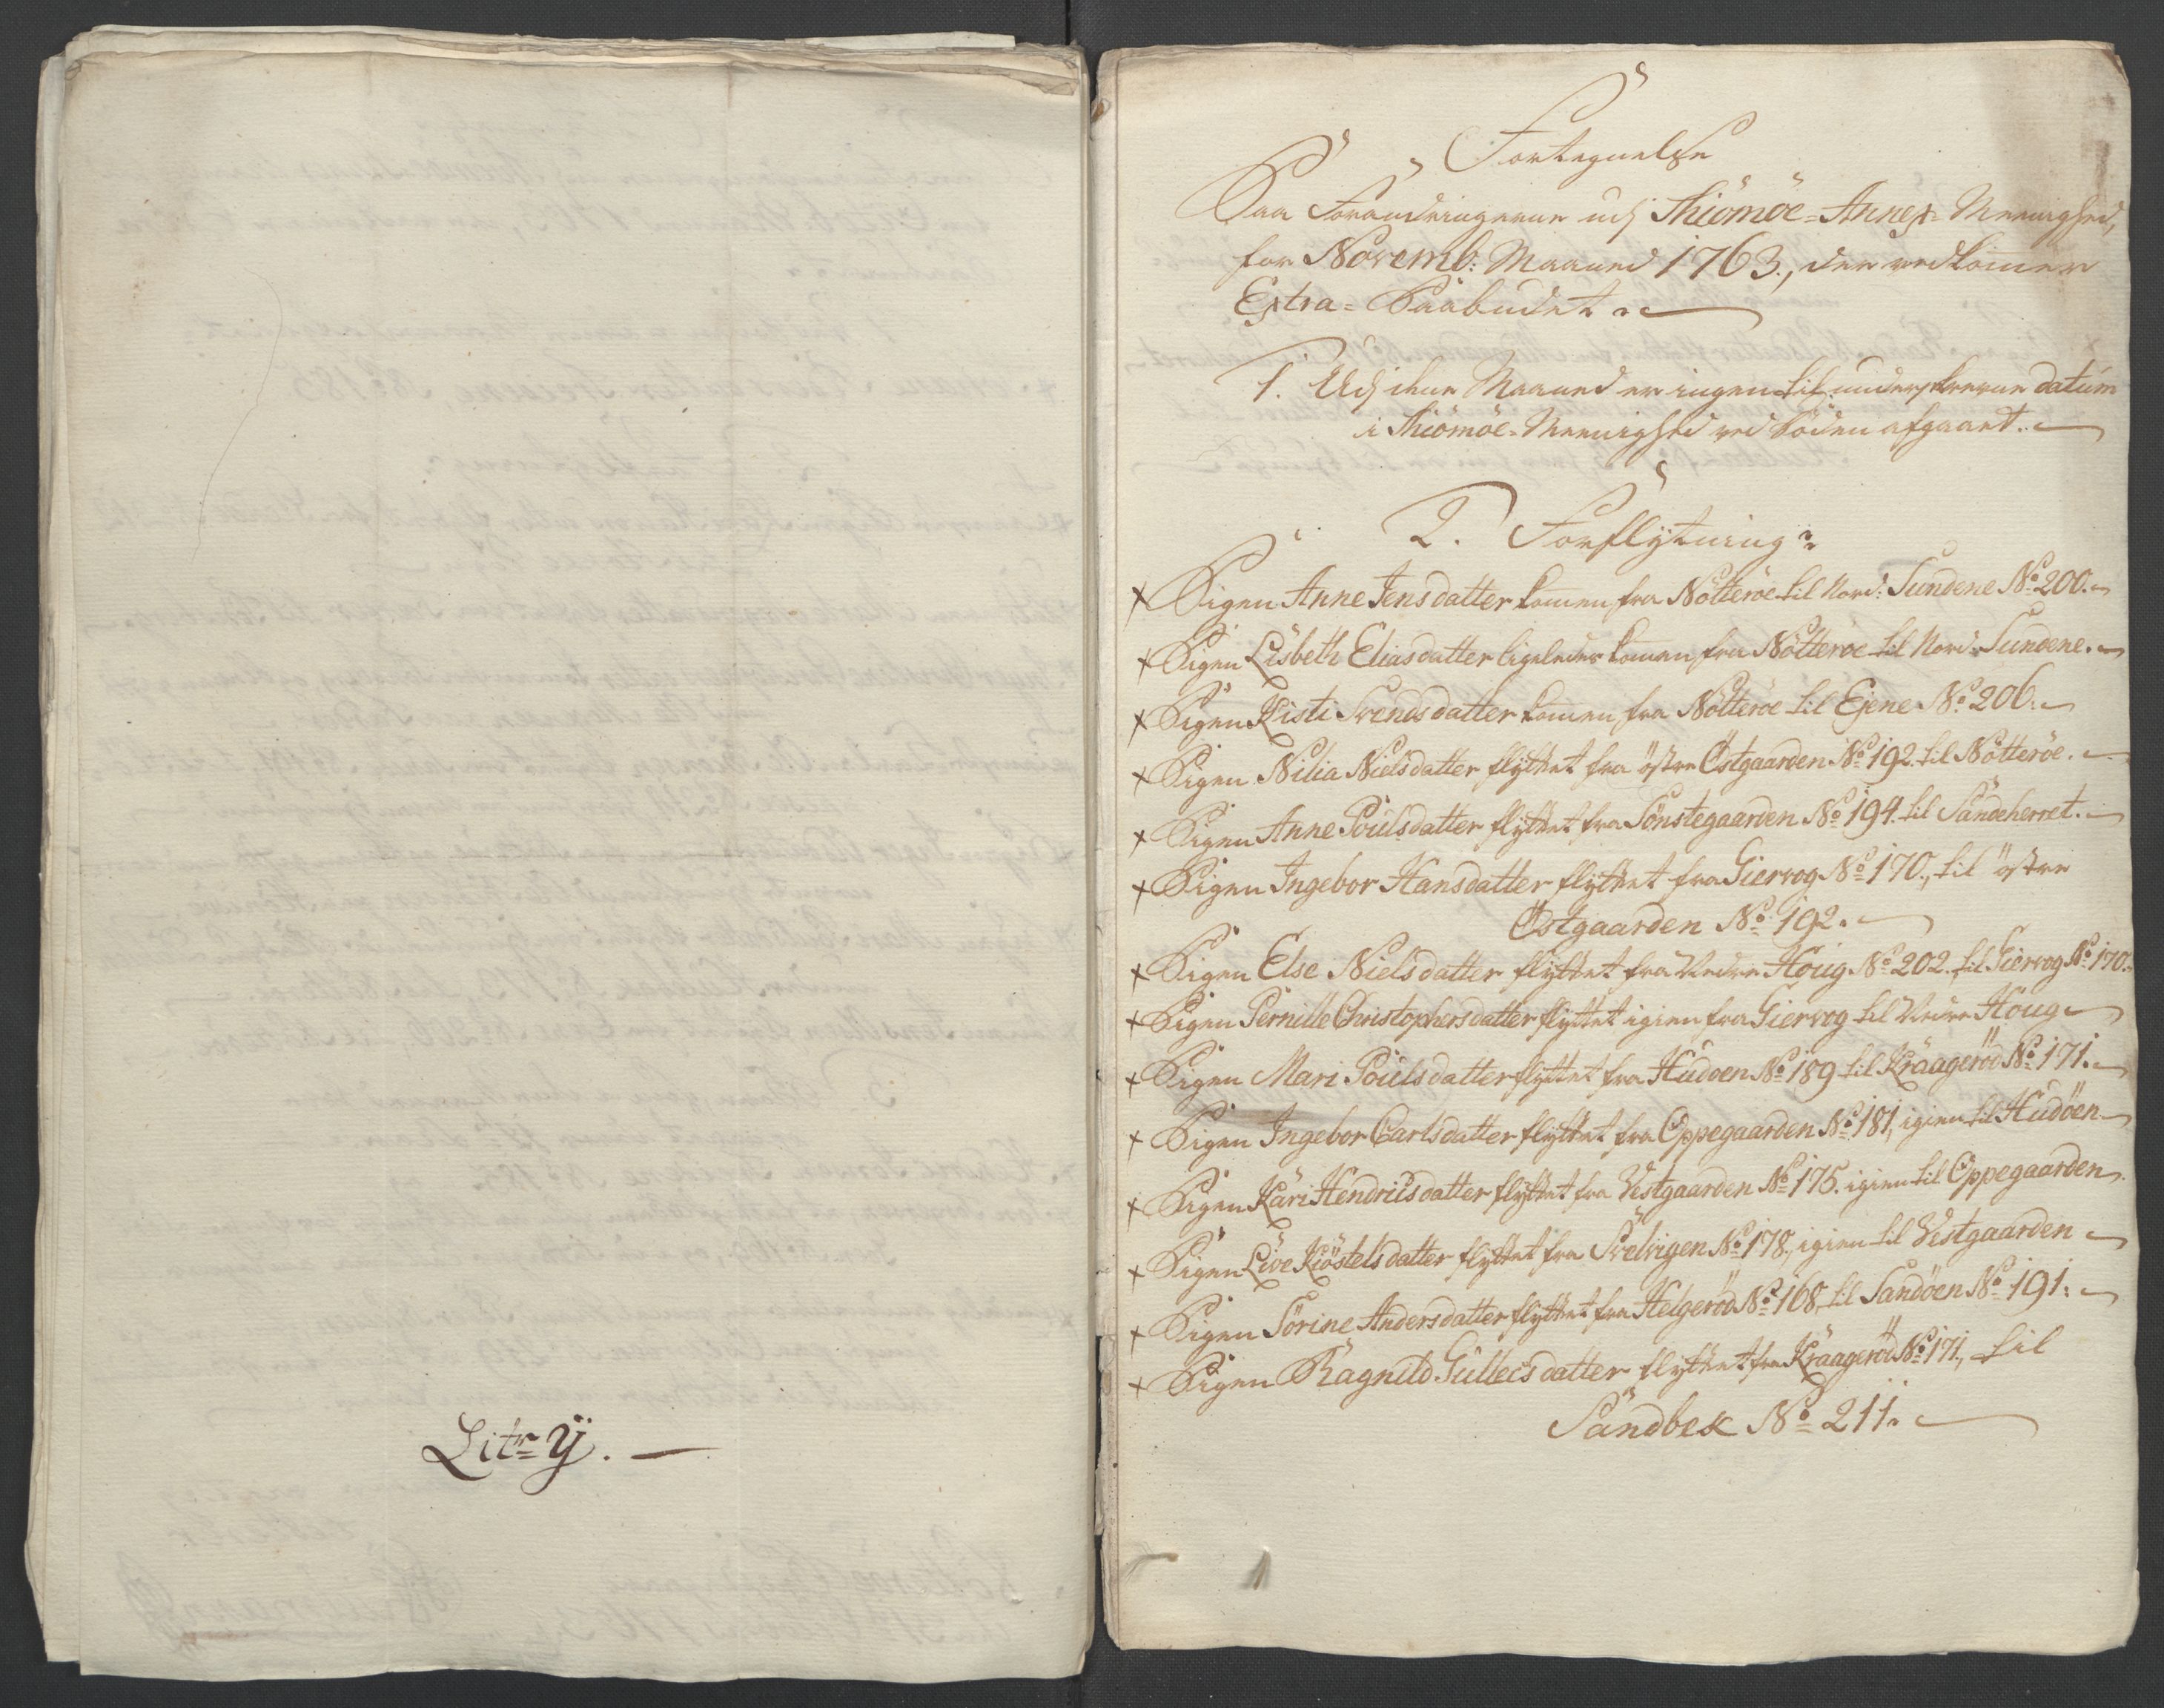 Litr. ÿ.
Fortegnelse
Paa Forandringerne udj Thiömöe-Annex-Meenighed,
for Novemb: Maaned 1763., der vedkommer
Extra-Paabudet.
1. Udj denne Maaned er ingen til underskrevne datum
i Thiömöe-Meenighed ved Döden afgaaet.
2. Forflÿtning.
x Pigen Anne Jensdatter kommen fra Nötteröe til Nord: Sundene No 200.
x Pigen Lisbeth Eliasdatter ligeledes kommen fra Nötteröe til Nord: Sundene.
x Pigen Kisti Svendsdatter kommen fra Nötteröe til Ejene No 206.
x Pigen Nilia Nielsdatter flÿttet fra östre Östgaarden No 192. til Nötteröe.
x Pigen Anne Poulsdatter flÿttet fra Sönstegaarden No 194. til Sandeherret.
x Pigen Ingebor Hansdatter flÿttet fra Giervog No 170., til östre
Östgaarden No 192.
x Pigen Else Nielsdatter flÿttet fra Nedre Houg No 202. til Giervog No 170.
x Pigen Pernille Christophersdatter flÿttet igien fra Giervog til Nedre Houg
x Pigen Mari Poulsdatter flÿttet fra Hudöen No 189 til Kraageröd No 171.
x Pigen Ingebor Carlsdatter flÿttet fra Oppegaarden No 181, igien til Hudöen
x Pigen Kari Hendricsdatter flÿttet fra Vestgaarden No 175. igien til Oppegaarden
x Pigen Live Kiöstelsdatter flÿttet fra Svelvigen No 178, igien til Vestgaarden
x Pigen Sörine Andersdatter flÿttet fra Helgeröd No 168, til Sandöen No 191.
x Pigen Ragnild Gullecsdatter flÿttet fra Kraageröd No 171, til
Sandbek No 211.